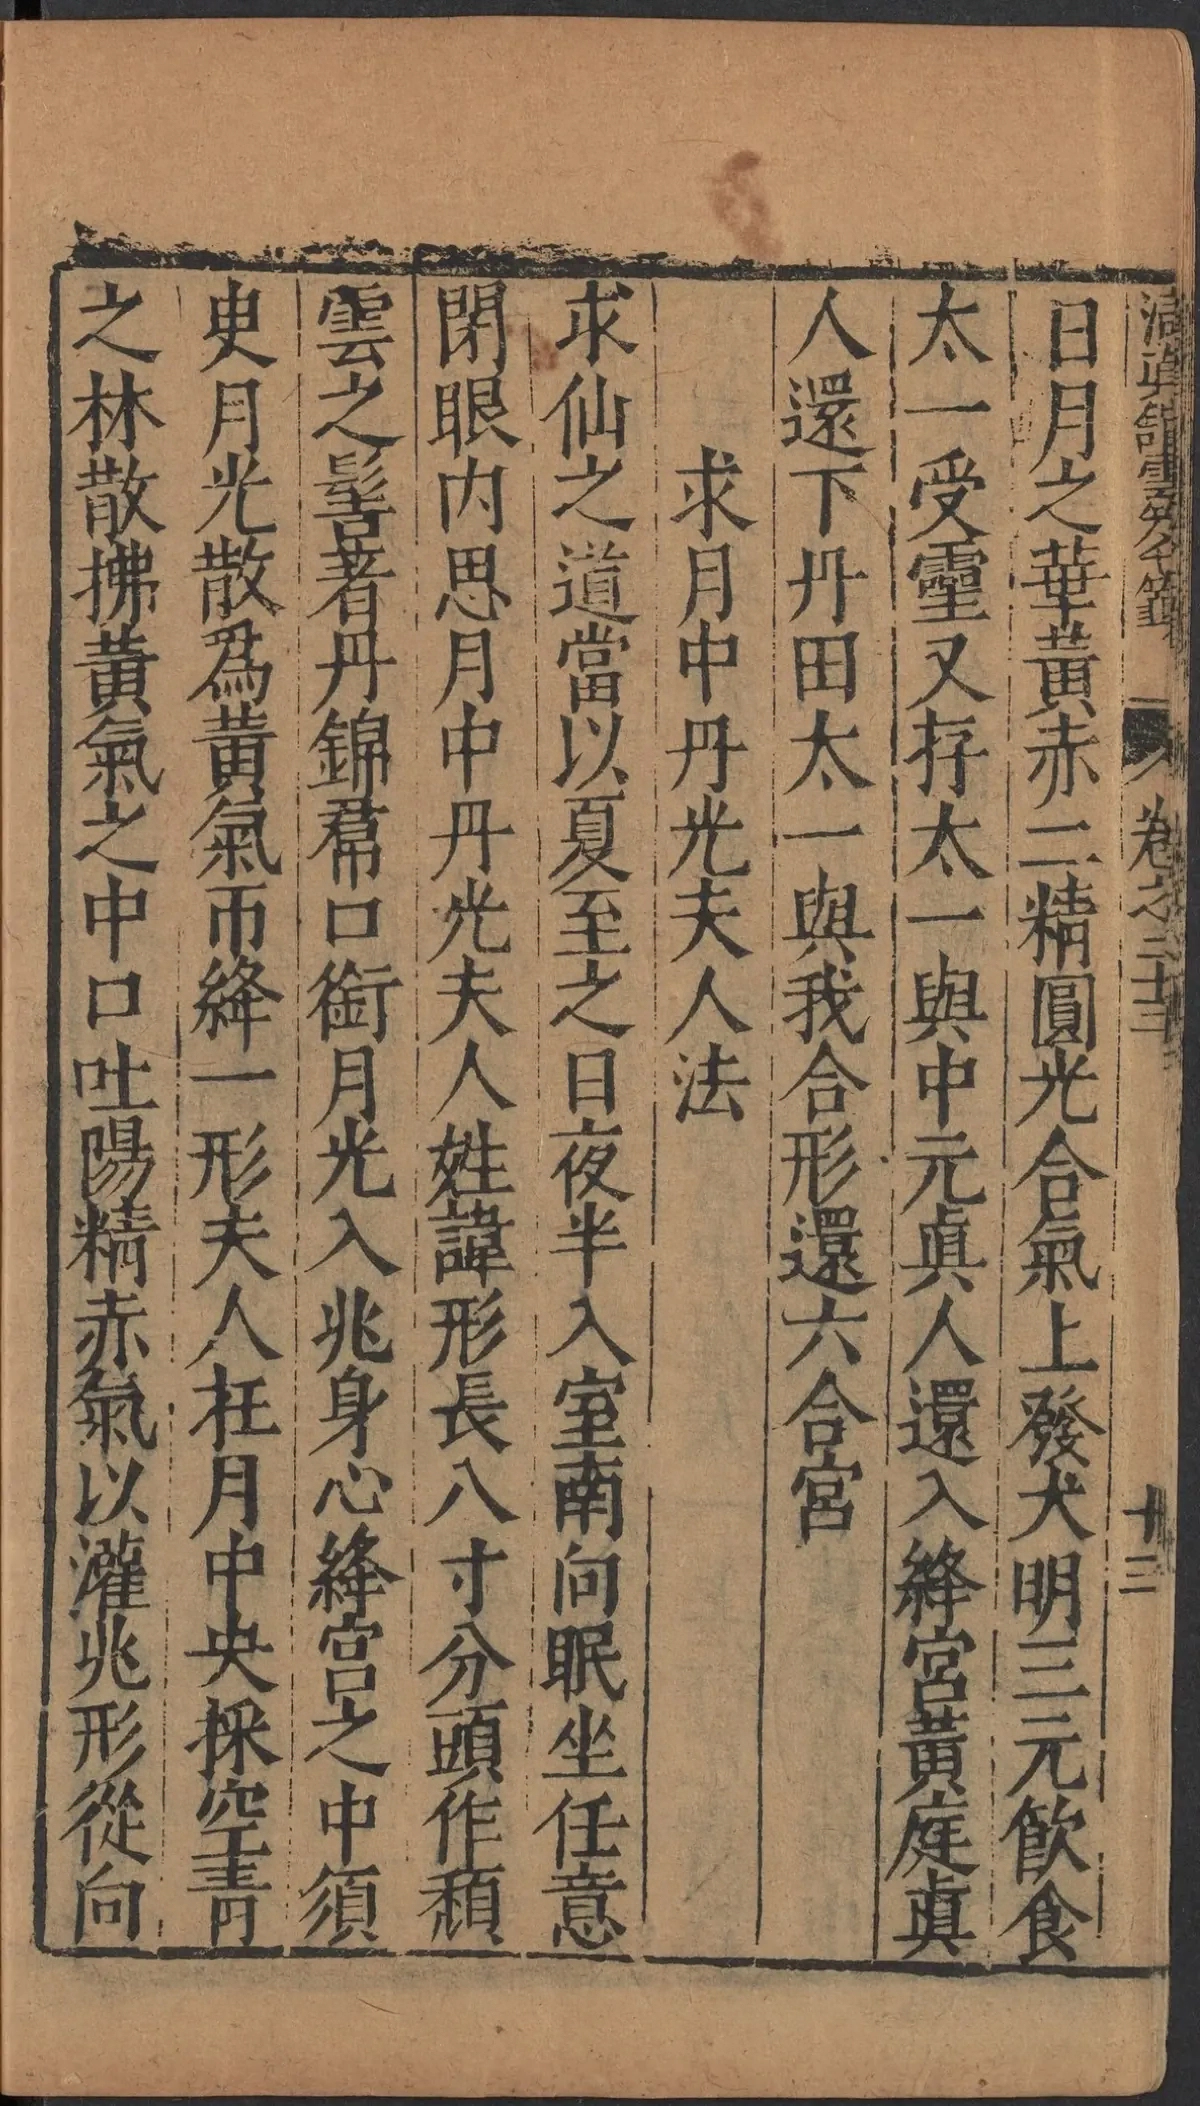 清真館雲笈七籤 卷之二十三 十三
日月之華黃赤二精圓光合氣上發大明三元飲食
太一受靈又存太一與中元眞人還入絳宮黃庭眞
人還下丹田太一與我合形還六合宮
求月中丹光夫人法
求仙之道當以夏至之日夜半入室南向眠坐任意
閉眼內思月中丹光夫人姓諱形長八寸分頭作頹
雲之髻著丹錦帬口銜月光入兆身心絳宮之中須
史月光散爲黃氣帀絳一形夫人在月中央採空青
之林散拂黃氣之中口吐陽精赤氣以灌兆形從向